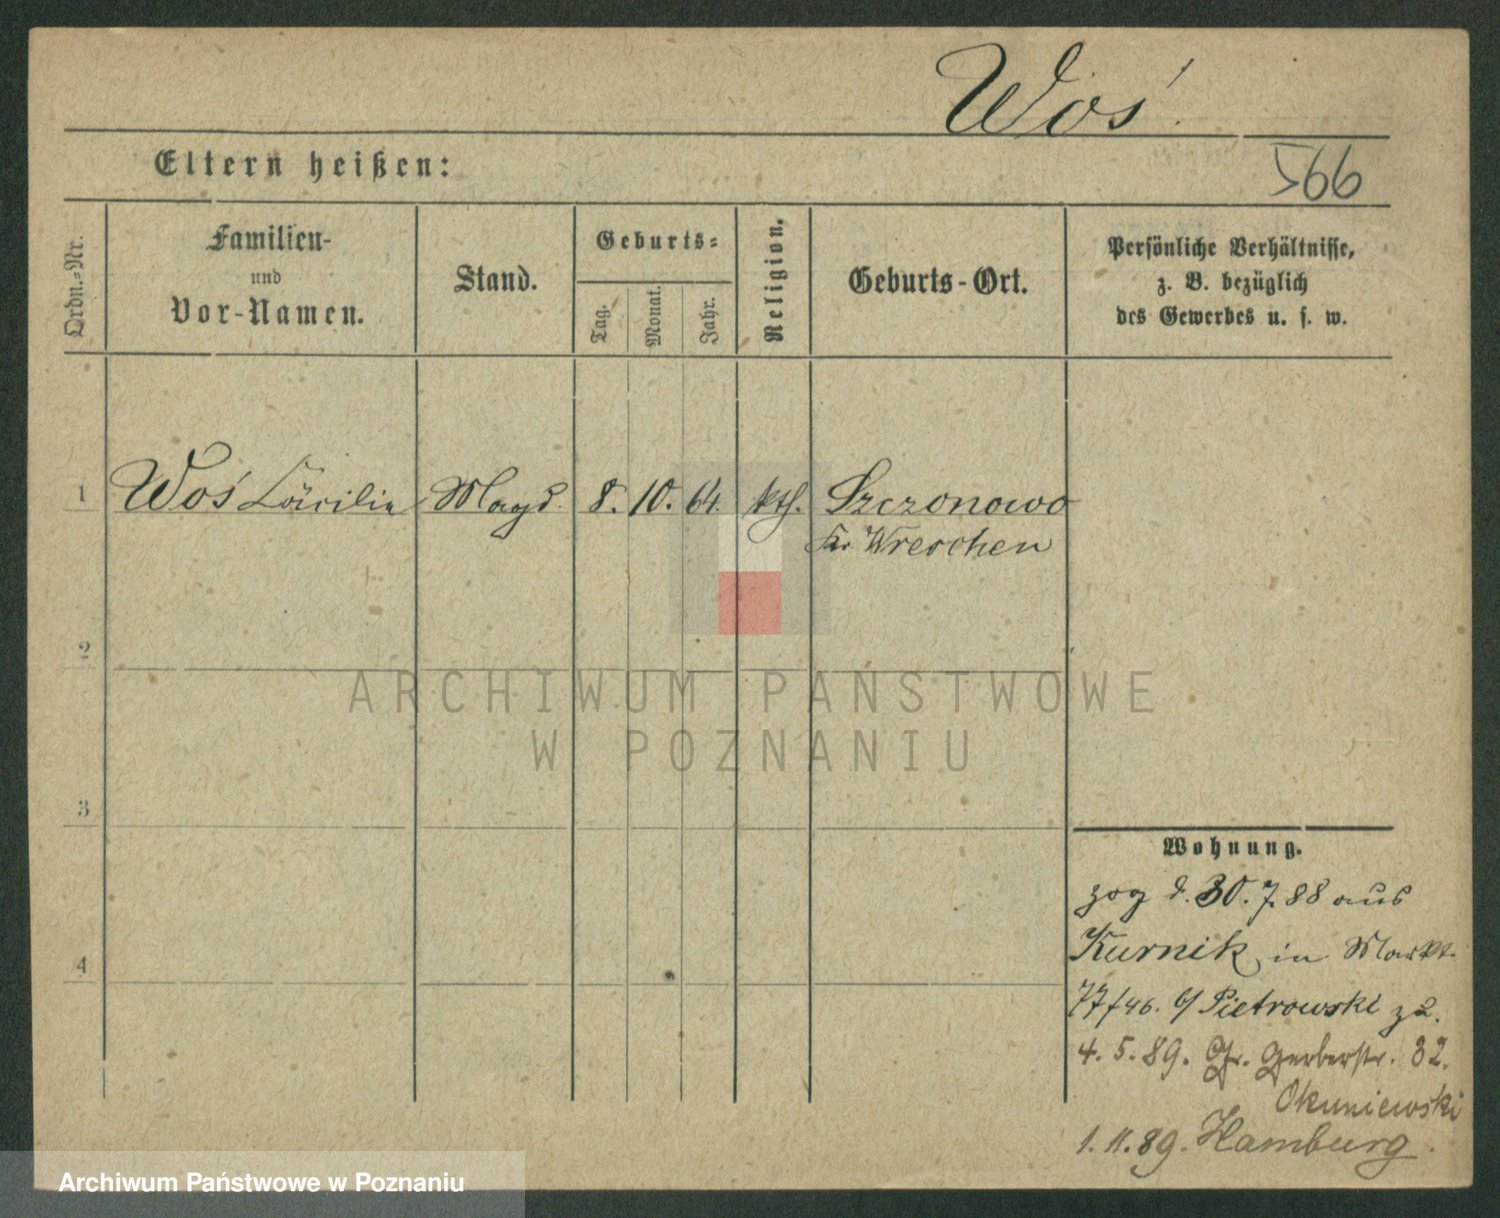 Woś.
Eltern heißen:
566
Ordn.-Nr.
Familien-
und
Vor-Namen.
Stand.
Geburts-
Tag.
Monat.
Jahr.
Religion.
Geburts-Ort.
Persönliche Verhältnisse,
z. B. bezüglich
des Gewerbes u. s. w.
1 Woś Cäcilie Magd. 8. 10. 64. kth. Szczonowo
Kr. Wreschen
2
3
4
ARCHIWUM PAŃSTWOWE
W POZNANIU
Wohnung.
zog d. 30. 7. 88 aus
Kurnik in Markt.
77/46. b/ Pietrowski zu.
4. 5. 89. Gr. Gerberstr. 32.
Okuniewski
1. 11. 89. Hamburg.
Archiwum Państwowe w Poznaniu